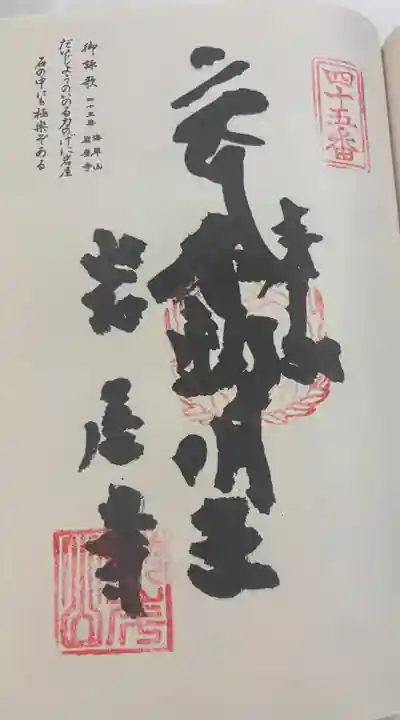 四十五番
奉
不動明王
岩屋寺
御詠歌 四十五番 海岸山 岩屋寺
だいしようのいのる力のげに岩屋
石の中にも極楽ぞある